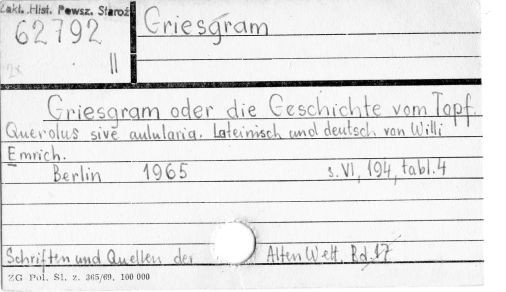 Zakł. Hist. Powsz. Staroż
62792
II
Griesgram
Griesgram oder die Geschichte vom Topf.
Querolus sive aulularia. Lateinisch und deutsch von Willi
Emrich.
Berlin 1965 s. VI, 194, tabl. 4
Schriften und Quellen der Alten Welt. Bd. 17
ZG Pol. Sl. z. 365/69, 100 000